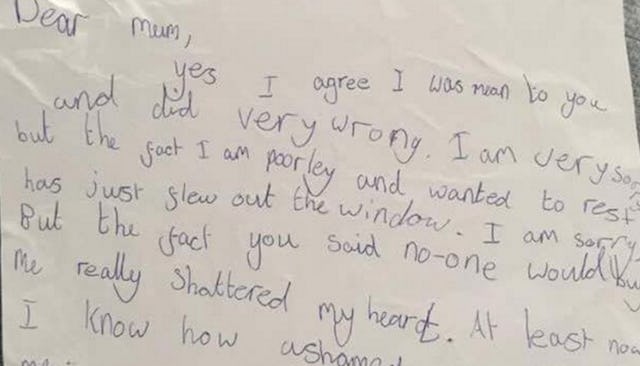 Dear mum,
yes I agree I was mean to you
and did very wrong. I am very sorry
but the fact I am poorley and wanted to rest
has just flew out the window. I am sorry
But the fact you said no-one would
me really shattered my heart. At least now
I know how ashamed